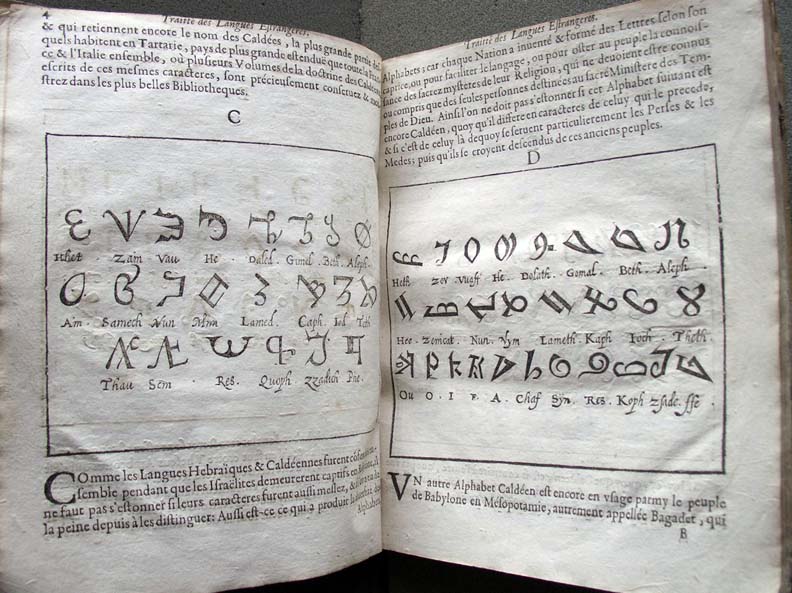 4
Traitté des Langues Estrangeres.
& qui retiennent encore le nom des Caldées, la plus grande partie des-
quels habitent en Tartarie, pays de plus grande estenduë que toute la France
& l'Italie ensemble, où plusieurs Volumes de la doctrine des Caldées
escrits de ces mesmes caracteres, sont précieusement conseruez & mon-
strez dans les plus belles Bibliotheques.
C
Hhet. Zam Vau . He . Daled. Gimel. Beth. Aleph.
Am. Samech Nun Mma Lamed. Caph. Iod Teth
Thau Sem . Res. Quoph Zzadich Phe.
COmme les Langues Hebraïques & Caldéennes furent
semble pendant que les Israëlites demeurerent captifs en
ne faut pas s'estonner si leurs caracteres furent aussi meslez, &
la peine depuis à les distinguer: Aussi est-ce ce qui a produit
Alphabets
Traitté des Langues Estrangeres.
Alphabets; car chaque Nation a inuenté & formé des Lettres selon son
caprice, ou pour faciliter le langage, ou pour oster au peuple la connois-
sance des sacrez mysteres de leur Religion, qui ne deuoient estre connus
ou compris que des seules personnes destinées au sacré Ministere des Tem-
ples de Dieu. Ainsi l'on ne doit pas s'estonner si cet Alphabet suiuant est
encore Caldéen, quoy qu'il differe en caracteres de celuy qui le precede,
& si c'est de celuy là dequoy se seruent particulierement les Perses & les
Medes; puis qu'ils se croyent descendus de ces anciens peuples.
D
Heth . Zer Vugff He . Dolath. Gomal. Beth. Aleph.
Hee . Zemcat. Nun. Mym Lameth. Kaph Ioch. Theth.
Ou O . I . E . A . Chaf Syn. Res. Koph Zsade. ffe .
VN autre Alphabet Caldéen est encore en vsage parmy le peuple
de Babylone en Mésopotamie, autrement appellée Bagadet, qui
B